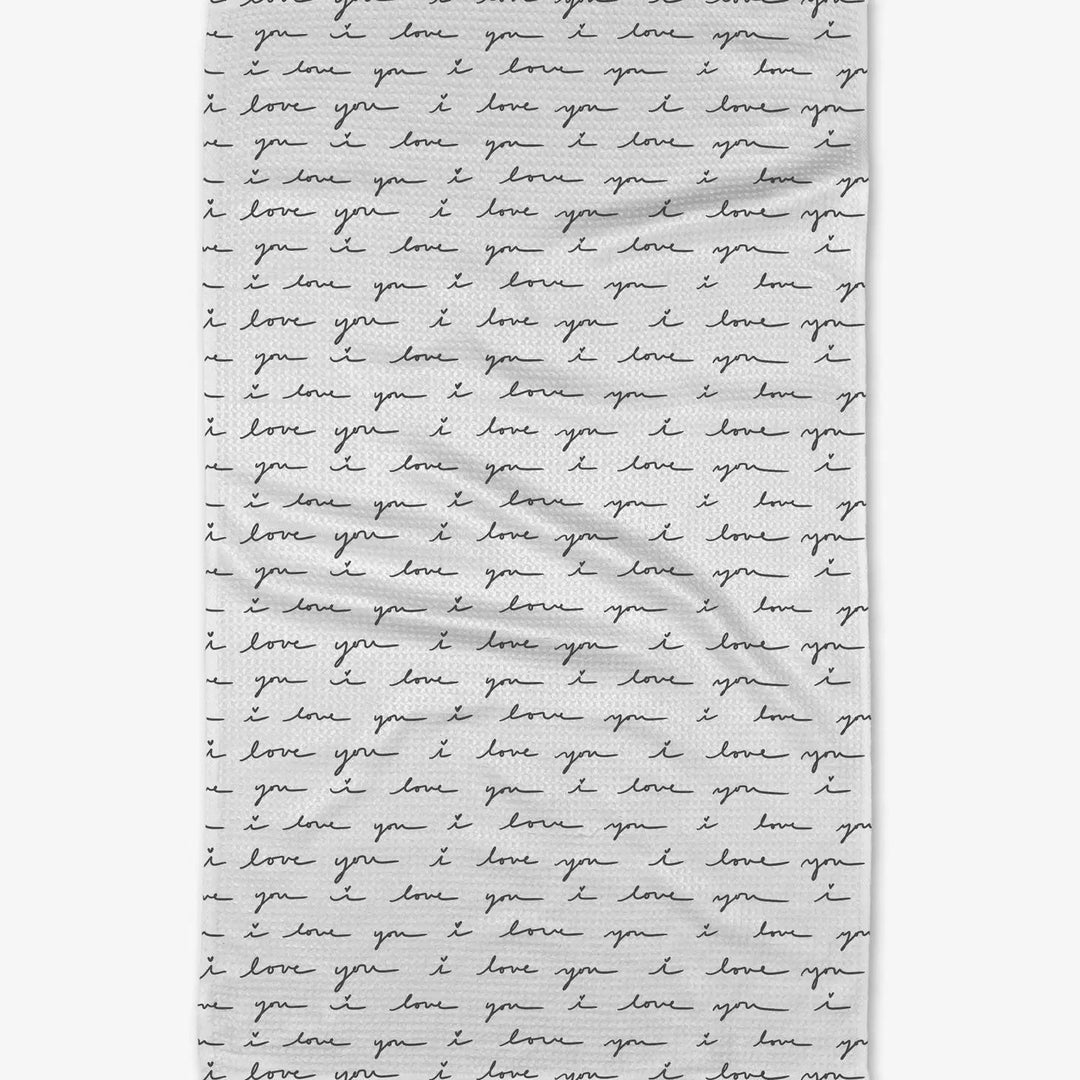 i love you i love you i love you
you i love you i love you i
i love you i love you i love you
i love you i love you i love you
you i love you i love you i
i love you i love you i love you
i love you i love you i love you
you i love you i love you i
i love you i love you i love you
i love you i love you i love you
you i love you i love you i
i love you i love you i love you
i love you i love you i love you
you i love you i love you i
i love you i love you i love you
i love you i love you i love you
you i love you i love you i
i love you i love you i love you
i love you i love you i love you
you i love you i love you i
i love you i love you i love you
i love you i love you i love you
you i love you i love you i
i love you i love you i love you
i love you i love you i love you
you i love you i love you i
i love you i love you i love you
i love you i love you i love you
you i love you i love you i
i love you i love you i love you
i love you i love you i love you